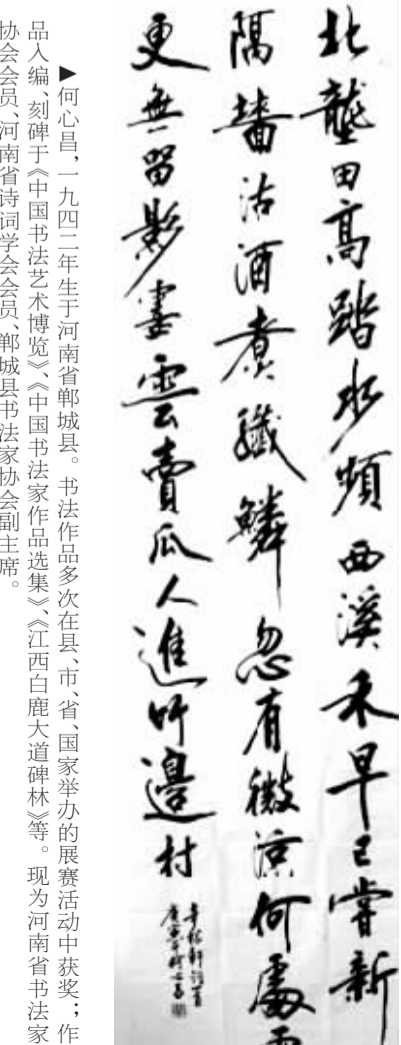 北壟田高踏水頻西溪禾早已嘗新
隔墻沽酒煮纖鱗忽有微涼何處雨
更無留影雲賣瓜人進竹邊村
辛稼軒詞
▶何心昌，一九四二年生于河南省郸城县。书法作品多次在县、市、省、国家举办的展赛活动中获奖；作
品入编、刻碑于《中国书法艺术博览》、《中国书法家作品选集》、《江西白鹿大道碑林》等。现为河南省书法家
协会会员、河南省诗词学会会员、郸城县书法家协会副主席。